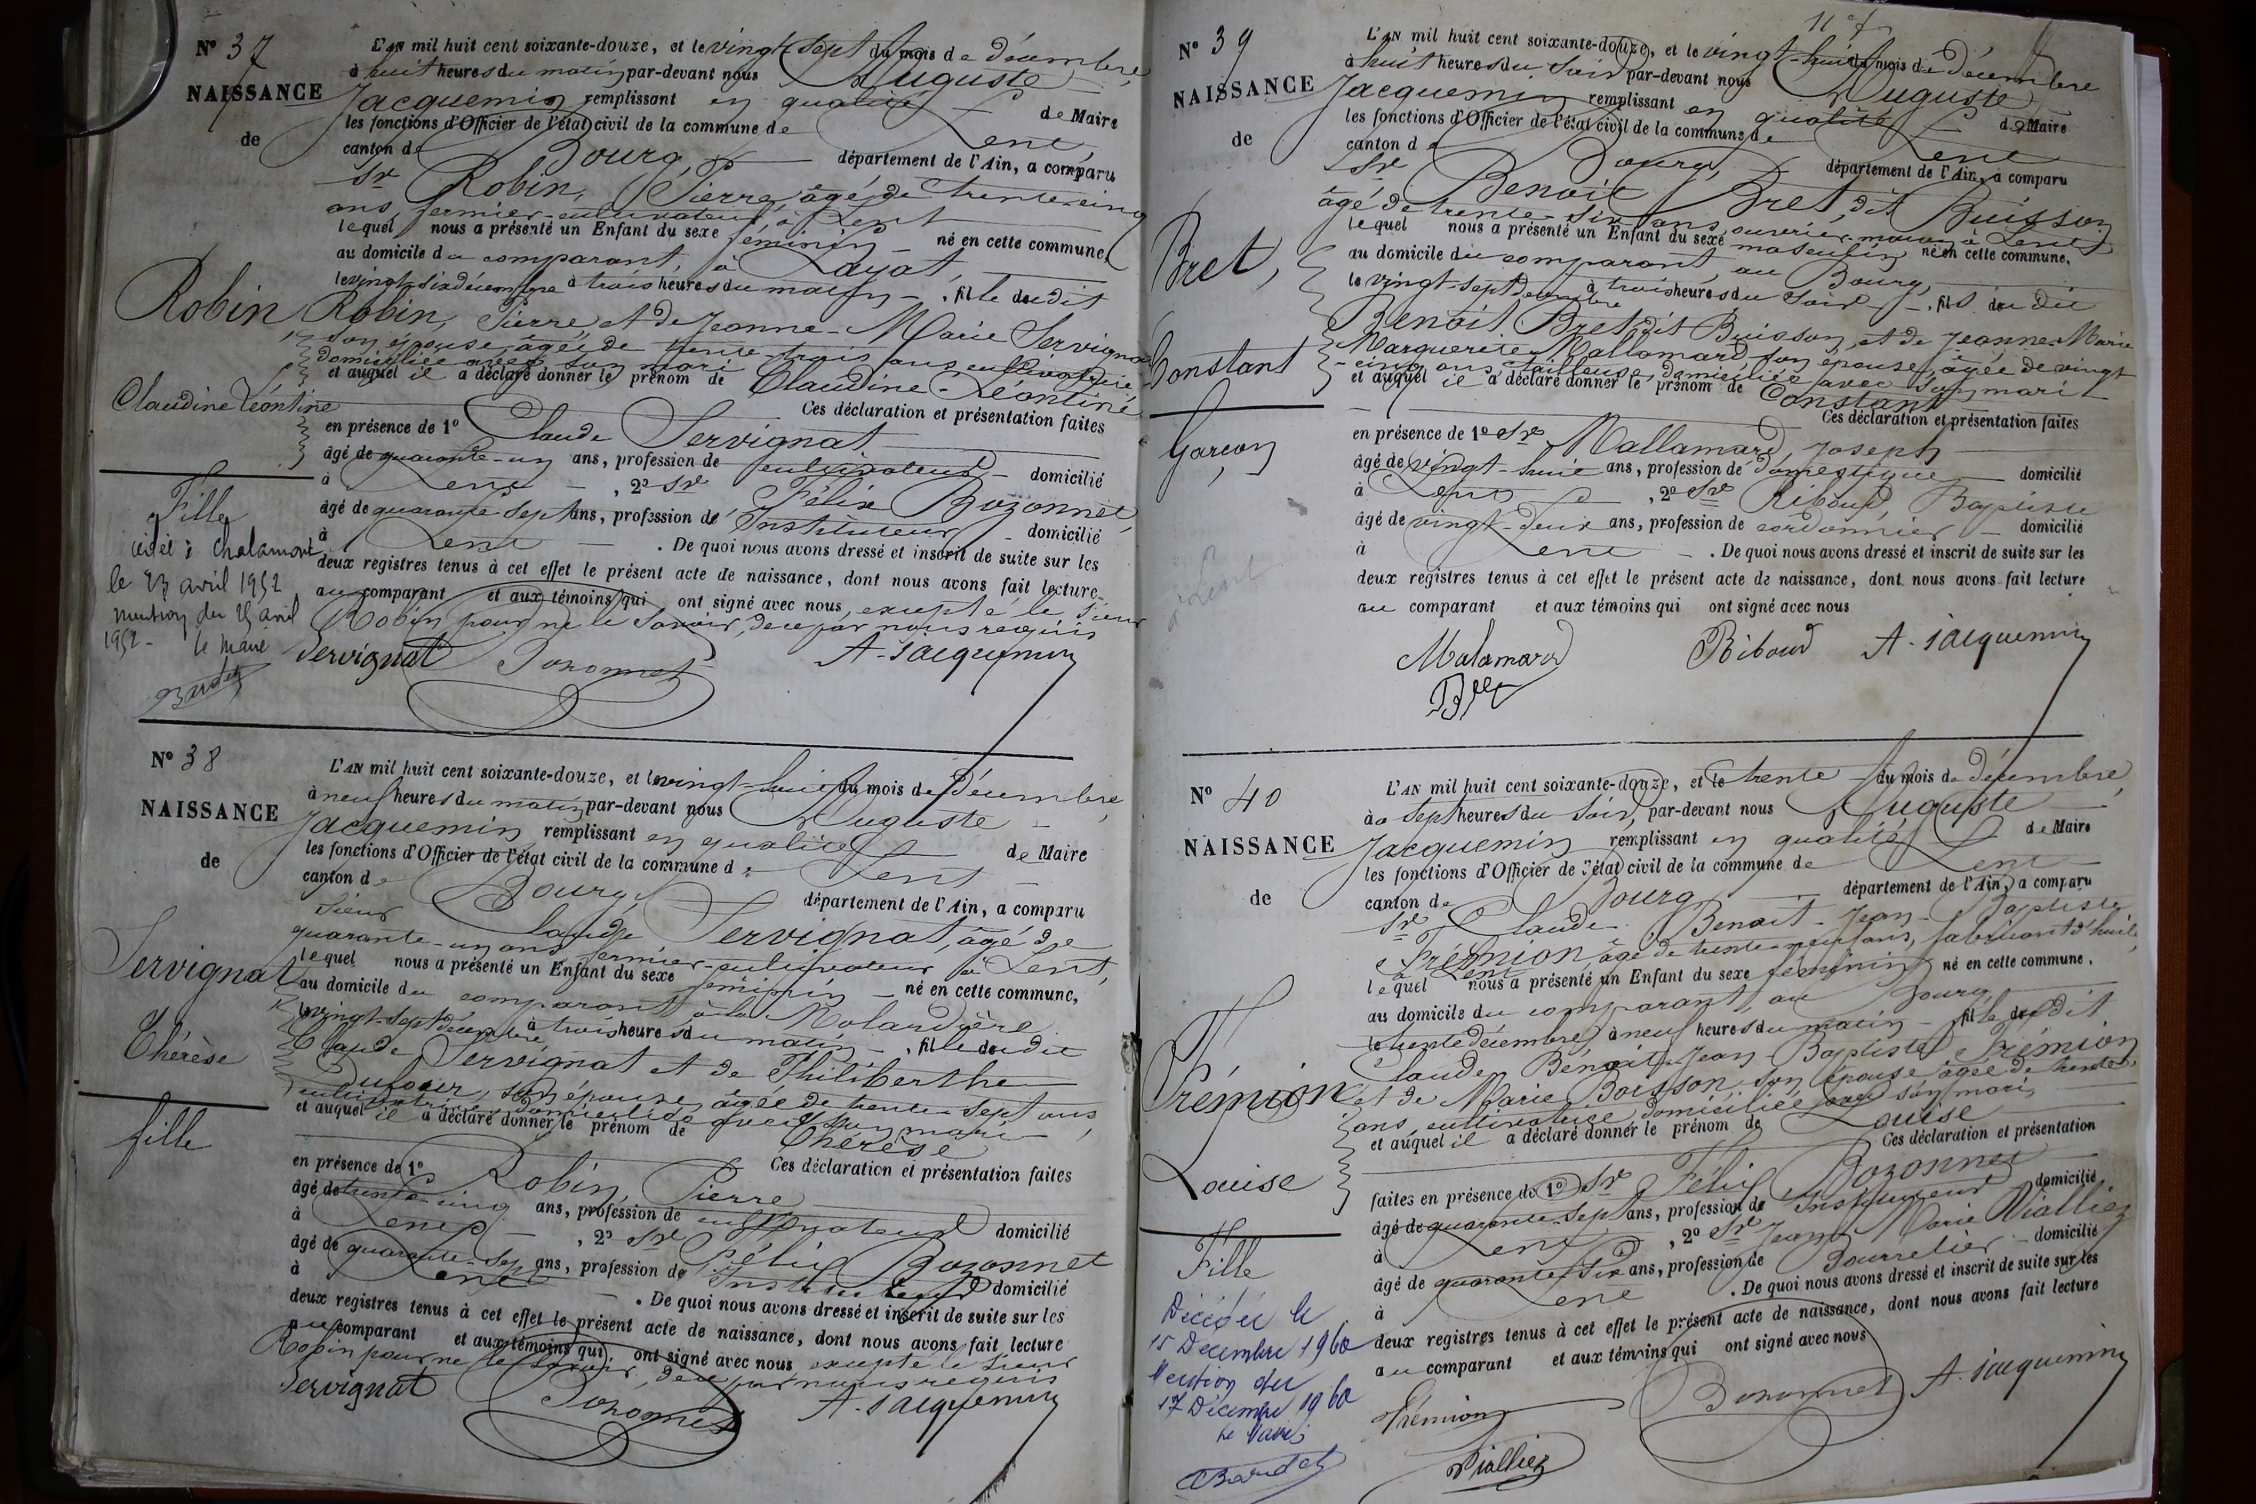 N° 37
NAISSANCE
de
Robin
Claudine Léontine
Fille
décédée à Chalamont
le 23 avril 1952
mention du 25 avril
1952 - le Maire
L'AN mil huit cent soixante-douze, et le vingt sept du mois de décembre,
à huit heures du matin par-devant nous Auguste
Jacquemin remplissant en qualité de Maire
les fonctions d'Officier de l'état civil de la commune de Lent,
canton de Bourg, département de l'Ain, a comparu
Sr Robin, Pierre, âgé de trente-cinq
ans, fermier-cultivateur à Lent
lequel nous a présenté un Enfant du sexe féminin né en cette commune,
au domicile du comparant, à Layat,
le vingt-six décembre à trois heures du matin, fille dudit
Robin, Pierre, et de Jeanne-Marie Servignat
son épouse, âgée de trente-trois ans, cultivatrice
domiciliée avec son mari
et auquel il a déclaré donner le prénom de Claudine-Léontine
Ces déclaration et présentation faites
en présence de 1° Claude Servignat
âgé de quarante-un ans, profession de cultivateur domicilié
à Lent, 2° Sr Félix Bozonnet,
âgé de quarante-sept ans, profession d'Instituteur domicilié
à Lent. De quoi nous avons dressé et inscrit de suite sur les
deux registres tenus à cet effet le présent acte de naissance, dont nous avons fait lecture
au comparant et aux témoins qui ont signé avec nous, excepté le sieur
Robin pour ne le savoir, de ce par nous requis
Servignat Bozonnet A. Jacquemin
N° 38
NAISSANCE
de
Servignat
Thérèse
fille
L'AN mil huit cent soixante-douze, et le vingt-huit du mois de Décembre,
à neuf heures du matin par-devant nous Auguste
Jacquemin remplissant en qualité de Maire
les fonctions d'Officier de l'état civil de la commune de Lent
canton de Bourg département de l'Ain, a comparu
Sieur Claude Servignat, âgé de
quarante-un ans, fermier-cultivateur à Lent,
lequel nous a présenté un Enfant du sexe féminin né en cette commune,
au domicile du comparant à la Molardière
le vingt-sept décembre à trois heures du matin, fille dudit
Claude Servignat et de Philiberthe
Dufour, son épouse, âgée de trente-sept ans,
cultivatrice domiciliée avec son mari,
et auquel il a déclaré donner le prénom de Thérèse
Ces déclaration et présentation faites
en présence de 1° Robin, Pierre
âgé de trente-cinq ans, profession de cultivateur domicilié
à Lent, 2° Sr Félix Bozonnet
âgé de quarante-sept ans, profession d'Instituteur domicilié
à Lent. De quoi nous avons dressé et inscrit de suite sur les
deux registres tenus à cet effet le présent acte de naissance, dont nous avons fait lecture
au comparant et aux témoins qui ont signé avec nous excepté le sieur
Robin pour ne le savoir, de ce par nous requis
Servignat Bozonnet A. Jacquemin
N° 39
NAISSANCE
de
Bret,
Constant
Garçon
L'AN mil huit cent soixante-douze, et le vingt-huit du mois de décembre
à huit heures du soir par-devant nous Auguste
Jacquemin remplissant en qualité de Maire
les fonctions d'Officier de l'état civil de la commune de Lent
canton de Bourg, département de l'Ain, a comparu
Sr Benoit Bret, dit Buisson
âgé de trente-six ans, ouvrier-maçon à Lent
lequel nous a présenté un Enfant du sexe masculin né en cette commune,
au domicile du comparant, au Bourg,
le vingt-sept décembre à trois heures du soir, fils du dit
Benoit Bret dit Buisson, et de Jeanne-Marie
Marguerite Mallamard, son épouse, âgée de vingt
-cinq ans, tailleuse, domiciliée avec son mari
et auquel il a déclaré donner le prénom de Constant
Ces déclaration et présentation faites
en présence de 1° Sr Mallamard, Joseph
âgé de vingt-huit ans, profession de domestique domicilié
à Lent, 2° Sr Riboud, Baptiste
âgé de vingt-deux ans, profession de cordonnier domicilié
à Lent. De quoi nous avons dressé et inscrit de suite sur les
deux registres tenus à cet effet le présent acte de naissance, dont nous avons fait lecture
au comparant et aux témoins qui ont signé avec nous
Malamard Riboud A. Jacquemin
N° 40
NAISSANCE
de
Frémion
Louise
Fille
Décédée le
15 Décembre 1960
Mention du
17 Décembre 1960
Le Maire
L'AN mil huit cent soixante-douze, et le trente du mois de Décembre,
à sept heures du soir, par-devant nous Auguste
Jacquemin remplissant en qualité de Maire
les fonctions d'Officier de l'état civil de la commune de Lent
canton de Bourg département de l'Ain, a comparu
Sr Claude Benoit-Jean-Baptiste
Frémion, âgé de trente-neuf ans, fabricant d'huile
à Lent
lequel nous a présenté un Enfant du sexe féminin né en cette commune,
au domicile du comparant, au Bourg
le trente décembre à neuf heures du matin, fille dudit
Claude Bénoit-Jean-Baptiste Frémion
et de Marie Boisson, son épouse âgée de trente
ans, cultivatrice, domiciliée avec son mari,
et auquel il a déclaré donner le prénom de Louise
Ces déclaration et présentation
faites en présence de 1° Sr Félix Bozonnet
âgé de quarante-sept ans, profession de Instituteur domicilié
à Lent, 2° Sr Jean-Marie Viallier
âgé de quarante-six ans, profession de Bourrelier domicilié
à Lent. De quoi nous avons dressé et inscrit de suite sur les
deux registres tenus à cet effet le présent acte de naissance, dont nous avons fait lecture
au comparant et aux témoins qui ont signé avec nous
Frémion Bozonnet A. Jacquemin
Viallier